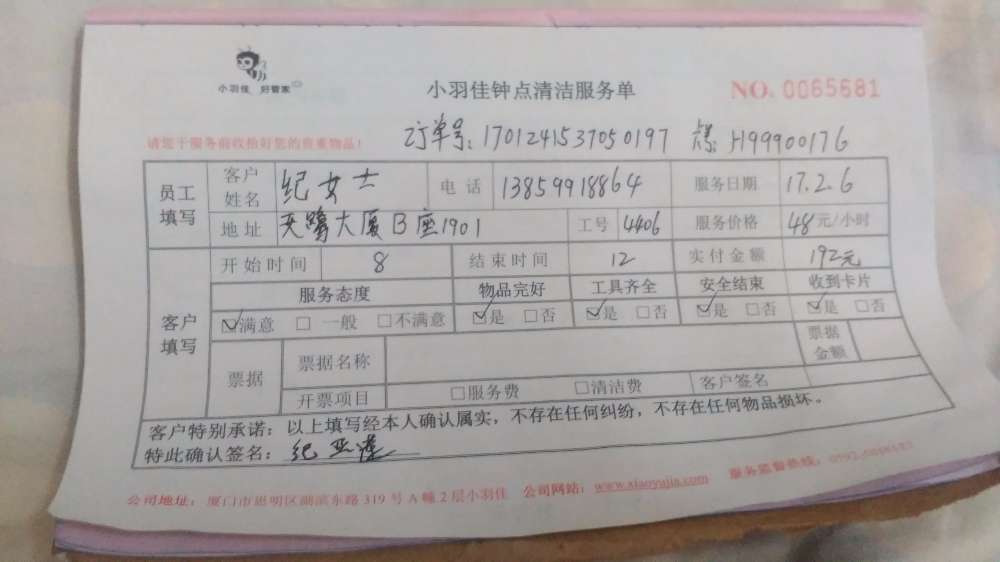 小羽佳 好管家
小羽佳钟点清洁服务单
NO. 0065681
请您于服务前收拾好您的贵重物品!
订单号: 1701241537050197 H99900176
员工填写 客户姓名 纪女士 电话 13859918864 服务日期 17.2.6
地址 天鹭大厦B座1901 工号 4406 服务价格 48元/小时
客户填写 开始时间 8 结束时间 12 实付金额 192元
服务态度 物品完好 工具齐全 安全结束 收到卡片
☑满意 □一般 □不满意 ☑是 □否 ☑是 □否 ☑是 □否 ☑是 □否
票据 票据名称 票据金额
开票项目 □服务费 □清洁费 客户签名
客户特别承诺:以上填写经本人确认属实,不存在任何纠纷,不存在任何物品损坏。
特此确认签名:纪亚莲
公司地址:厦门市思明区湖滨东路319号A幢2层小羽佳 公司网站:www.xiaoyujia.com 服务监督热线:0592